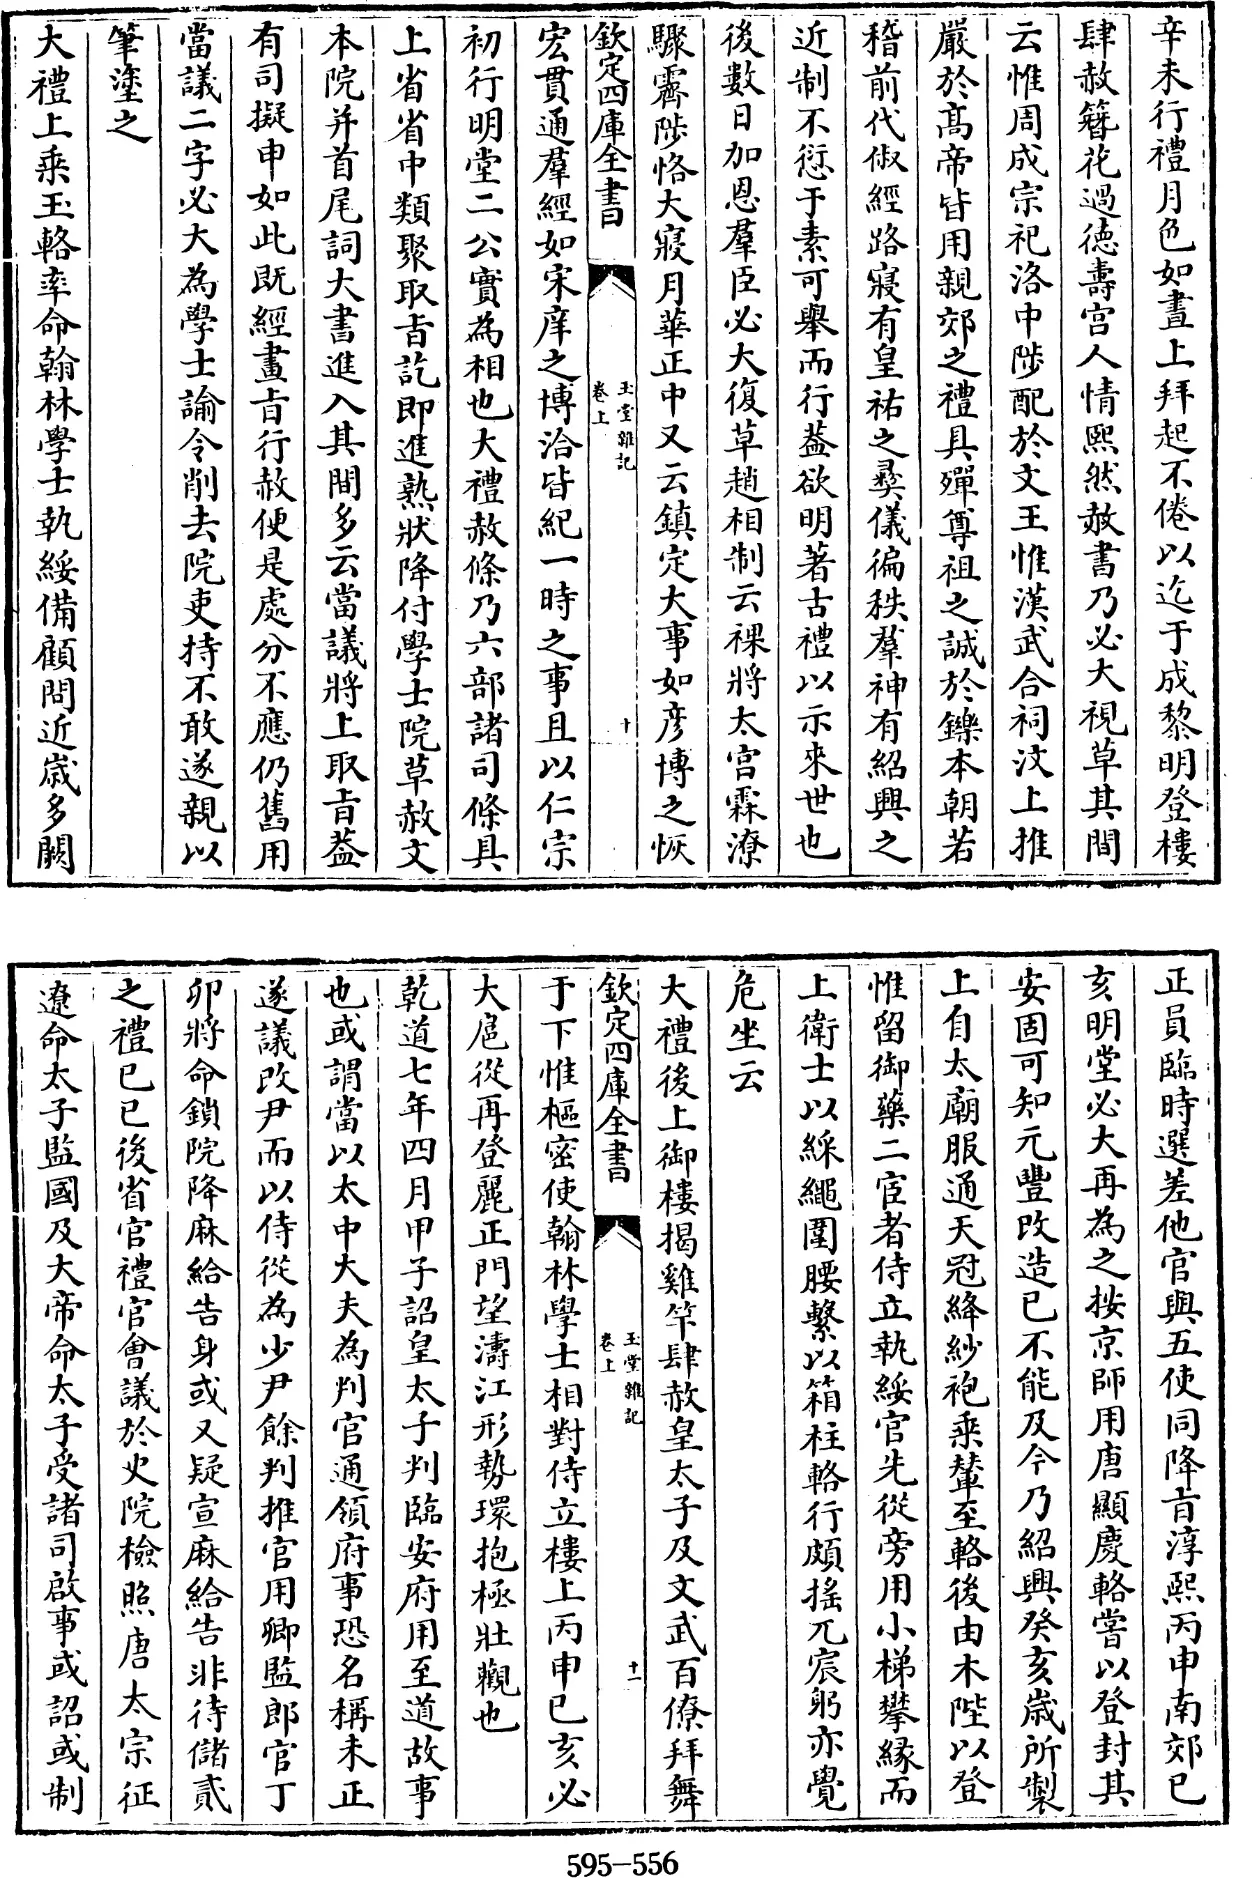 辛未行禮月色如晝上拜起不倦以迄于成黎明登樓
肆赦簪花過徳夀宫人情熙然赦書乃必大視草其間
云惟周成宗祀洛中陟配於文王惟漢武合祠汶上推
嚴於髙帝皆用親郊之禮具殫尊祖之誠於鑠本朝若
稽前代俶經路寢有皇祐之彞儀徧秩羣神有紹興之
近制不愆于素可舉而行葢欲明著古禮以示來世也
後數日加恩羣臣必大復草趙相制云祼將太宫霖潦
驟霽陟恪大寢月華正中又云鎮定大事如彦博之恢
欽定四庫全書
玉堂雜記
卷上
十
宏貫通羣經如宋庠之博洽皆紀一時之事且以仁宗
初行明堂二公實為相也大禮赦條乃六部諸司條具
上省省中類聚取㫖訖即進熟狀降付學士院草赦文
本院并首尾詞大書進入其間多云當議將上取㫖葢
有司擬申如此既經畫㫖行赦便是處分不應仍舊用
當議二字必大為學士諭令削去院吏持不敢遂親以
筆塗之
大禮上乘玉輅率命翰林學士執綏備顧問近嵗多闕
正員臨時選差他官與五使同降㫖淳熙丙申南郊已
亥明堂必大再為之按京師用唐顯慶輅嘗以登封其
安固可知元豐改造已不能及今乃紹興癸亥嵗所製
上自太廟服通天冠絳紗袍乘輦至輅後由木陛以登
惟留御藥二宦者侍立執綏官先從旁用小梯攀緣而
上衛士以綵繩圍腰繫以箱柱輅行頗搖兀宸躬亦覺
危坐云
大禮後上御樓揭雞竿肆赦皇太子及文武百僚拜舞
欽定四庫全書
玉堂雜記
卷上
十一
于下惟樞密使翰林學士相對侍立樓上丙申已亥必
大扈從再登麗正門望濤江形勢環抱極壯觀也
乾道七年四月甲子詔皇太子判臨安府用至道故事
也或謂當以太中大夫為判官通領府事恐名稱未正
遂議改尹而以侍從為少尹餘判推官用卿監郎官丁
卯將命鎖院降麻給告身或又疑宣麻給告非待儲貳
之禮已已後省官禮官會議於史院檢照唐太宗征
遼命太子監國及大帝命太子受諸司啟事或詔或制
595-556